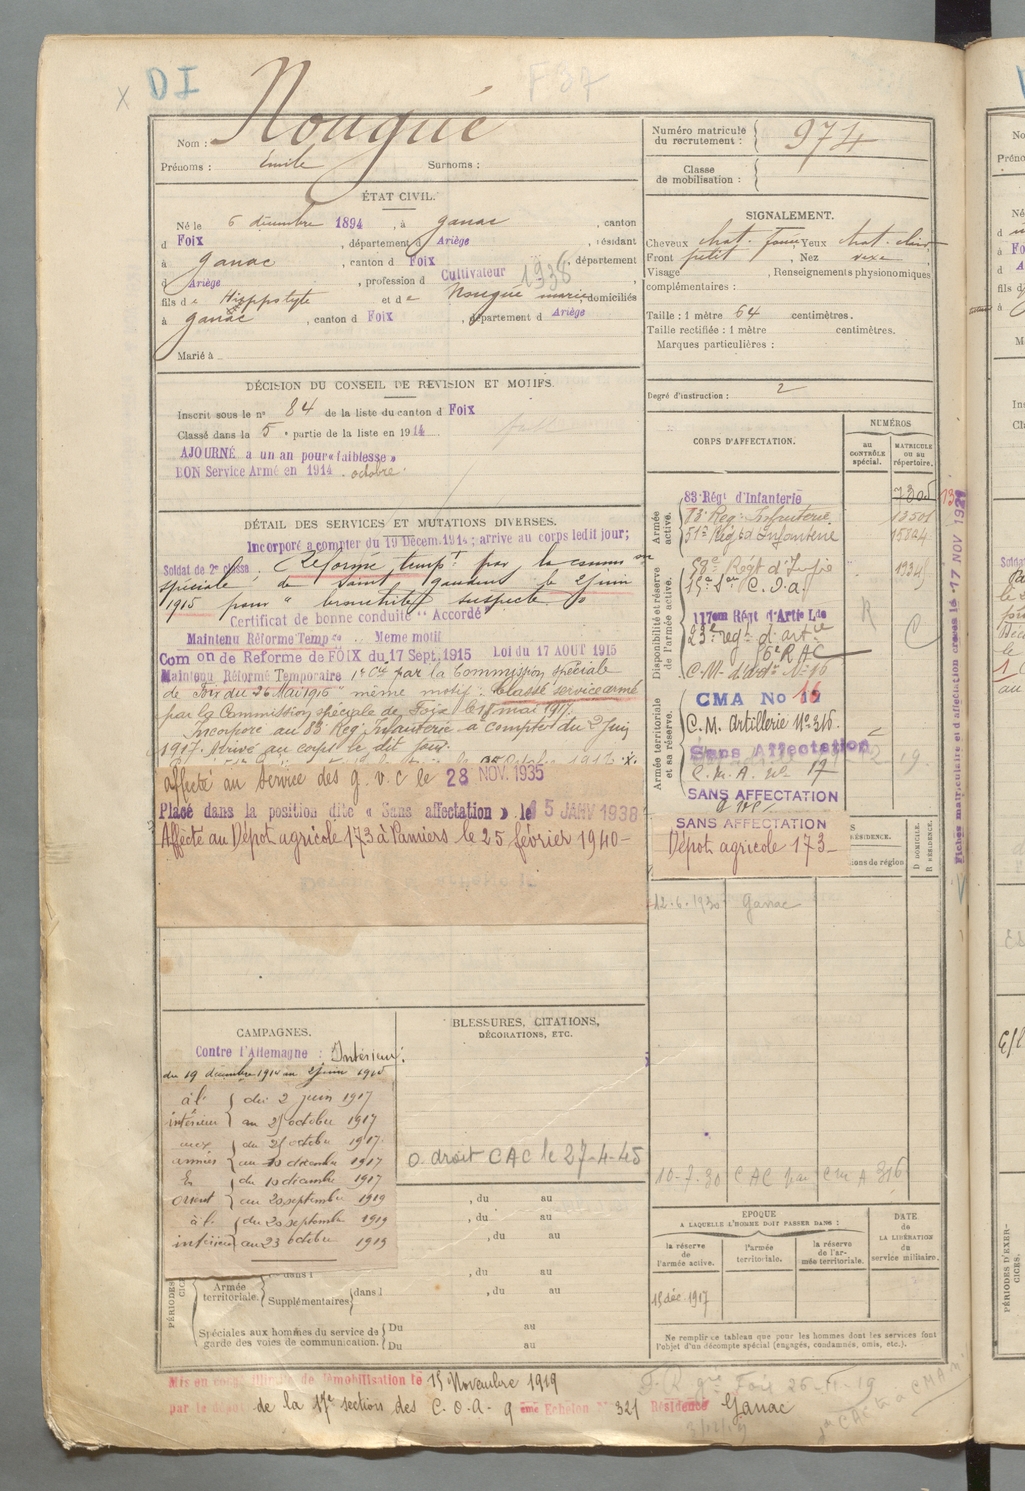 DI
F 37
X
Nom : Nougué
Prénoms : Émile Surnoms :
Numéro matricule du recrutement : 974
Classe de mobilisation :
ÉTAT CIVIL.
Né le 6 décembre 1894, à Ganac, canton
d Foix, département d Ariège, résidant
à Ganac, canton d Foix, département
d Ariège, profession d Cultivateur 1938
fils de Hippolyte et de Nougué Marie domiciliés
à Ganac, canton d Foix, département d Ariège
Marié à
SIGNALEMENT.
Cheveux chat. foncé Yeux chat. clair
Front petit, Nez vexe
Visage, Renseignements physionomiques
complémentaires :
Taille : 1 mètre 64 centimètres.
Taille rectifiée : 1 mètre centimètres.
Marques particulières :
Degré d'instruction : 2
DÉCISION DU CONSEIL DE REVISION ET MOTIFS.
Inscrit sous le n° 84 de la liste du canton d Foix
Classé dans la 5e partie de la liste en 1914
AJOURNÉ à un an pour « faiblesse »
BON Service Armé en 1914 . octobre.
DÉTAIL DES SERVICES ET MUTATIONS DIVERSES.
Incorporé à compter du 19 Décem. 1914; arrivé au corps ledit jour;
Soldat de 2e classe. Réformé tempt par la comm on
spéciale de Saint Gaudens le 2 juin
1915 pour "bronchite suspecte"
Certificat de bonne conduite "Accordé"
Maintenu Réforme Temp re Meme motif
Com on de Reforme de FOIX du 17 Sept. 1915 Loi du 17 AOUT 1915
Maintenu Réformé Temporaire 1e Cie par la Commission spéciale
de Foix du 26 Mai 1916 même motif. Classé service armé
par la Commission spéciale de Foix le 15 mai 1917.
Incorporé au 83e Rég. Infanterie à compter du 2 Juin
1917. Arrivé au corps le dit jour.
affecté au service des g.v.c le 28 NOV. 1935
Placé dans la position dite « Sans affectation » le 15 JANV 1938
Affecté au Dépôt agricole 173 à Pamiers le 25 février 1940 -
CORPS D'AFFECTATION.
NUMÉROS
au CONTRÔLE spécial.
MATRICULE ou au répertoire.
Armée active.
83 Régt d'Infanterie 7305
83e Régt Infanterie 13501
51e Régt d'Infanterie 15024
Disponibilité et réserve de l'armée active.
58e Régt d'Infie 19345
17e Son C.O.a.
117em Régt d'Artie Lde
23e regt d'artie
C.M. d'artie N° 16
R
C
Armée territoriale et sa réserve.
CMA No 16
C.M. Artillerie N° 316.
Sans Affectation
C.M.A. no 17
SANS AFFECTATION
G V C
SANS AFFECTATION
Dépôt agricole 173 -
RÉSIDENCE.
ions de région
D DOMICILE. R RÉSIDENCE.
12-6-1930 Ganac
10-7-30 CAC par CMA 316
Fiches matriculaire et d'affectation créées le 17 NOV 1921
CAMPAGNES.
Contre l'Allemagne : Intérieur.
du 19 décembre 1914 au 2 juin 1915
à l' intérieur { du 2 juin 1917
au 25 octobre 1917
aux armées { du 25 octobre 1917
au 10 décembre 1917
En Orient { du 10 décembre 1917
au 20 septembre 1919
à l' intérieur { du 20 septembre 1919
au 23 octobre 1919
BLESSURES, CITATIONS,
DÉCORATIONS, ETC.
O. droit CAC le 27-4-45
, du au
, du au
, du au
, du au
, du au
PÉRIODES D'EXERCICES.
Armée territoriale.
dans l
Supplémentaires dans l
Spéciales aux hommes du service de garde des voies de communication. Du au
Du au
ÉPOQUE
A LAQUELLE L'HOMME DOIT PASSER DANS :
la réserve de l'armée active.
l'armée territoriale.
la réserve de l'armée territoriale.
DATE de LA LIBÉRATION du service militaire.
15 déc. 1917
Ne remplir ce tableau que pour les hommes dont les services font l'objet d'un décompte spécial (engagés, condamnés, omis, etc.).
Mis en congé illimité de démobilisation le 15 Novembre 1919
par le dépôt de la 17e section des C.O.A. 9 ème Echelon N° 321 Résidence Ganac